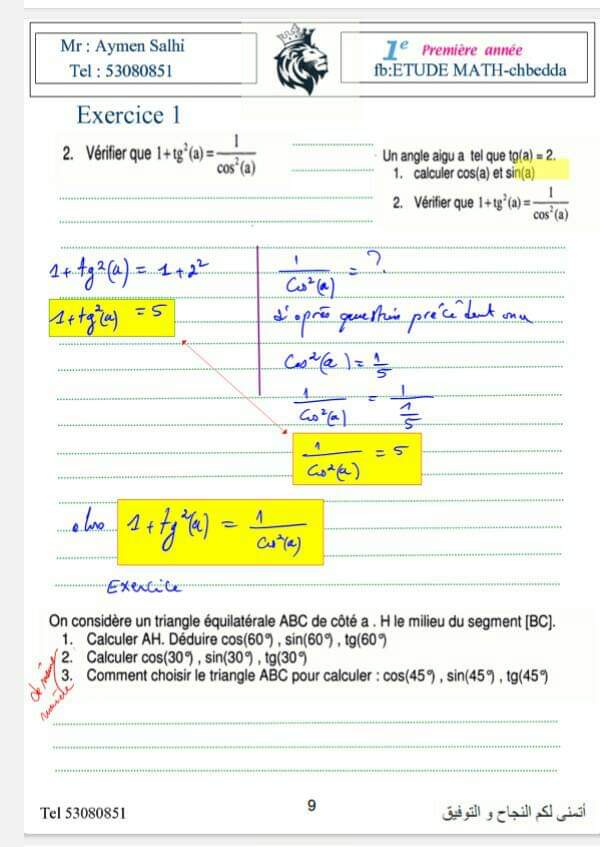 Mr : Aymen Salhi
Tel : 53080851
1e Première année
fb:ETUDE MATH-chbedda
Exercice 1
2. Vérifier que 1+tg²(a)=1/cos²(a)
Un angle aigu a tel que tg(a) = 2.
1. calculer cos(a) et sin(a)
2. Vérifier que 1+tg²(a)=1/cos²(a)
1+tg²(a) = 1+2²
1+tg²(a) = 5
1/cos²(a) = ?
d'après question précèdent on a
cos²(a) = 1/5
1/cos²(a) = 1/(1/5)
1/cos²(a) = 5
alors 1+tg²(a) = 1/cos²(a)
Exercice
On considère un triangle équilatérale ABC de côté a . H le milieu du segment [BC].
1. Calculer AH. Déduire cos(60°) , sin(60°) , tg(60°)
2. Calculer cos(30°) , sin(30°) , tg(30°)
3. Comment choisir le triangle ABC pour calculer : cos(45°) , sin(45°) , tg(45°)
de même
Tel 53080851
9
أتمنى لكم النجاح و التوفيق